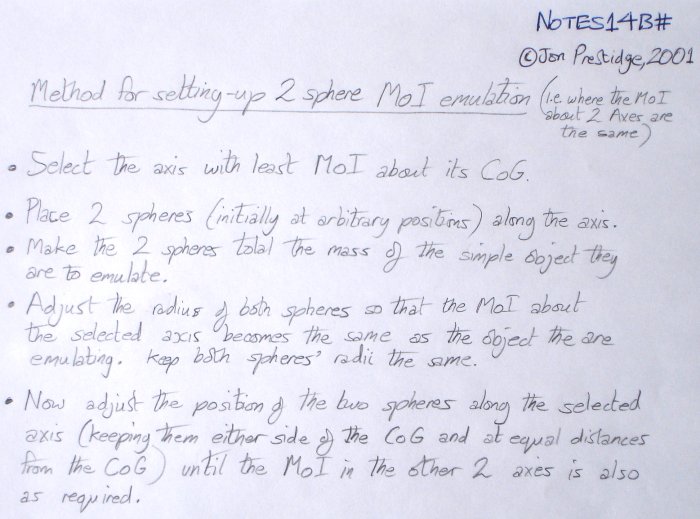 NOTES14B#
©Jon Prestidge, 2001
Method for setting-up 2 sphere MoI emulation (i.e. where the MoI
about 2 Axes are
the same)
• Select the axis with least MoI about its CoG.
• Place 2 spheres (initially at arbitrary positions) along the axis.
• Make the 2 spheres total the mass of the simple object they
are to emulate.
• Adjust the radius of both spheres so that the MoI about
the selected axis becomes the same as the object the are
emulating. Keep both spheres' radii the same.
• Now adjust the position of the two spheres along the selected
axis (keeping them either side of the CoG and at equal distances
from the CoG) until the MoI in the other 2 axes is also
as required.